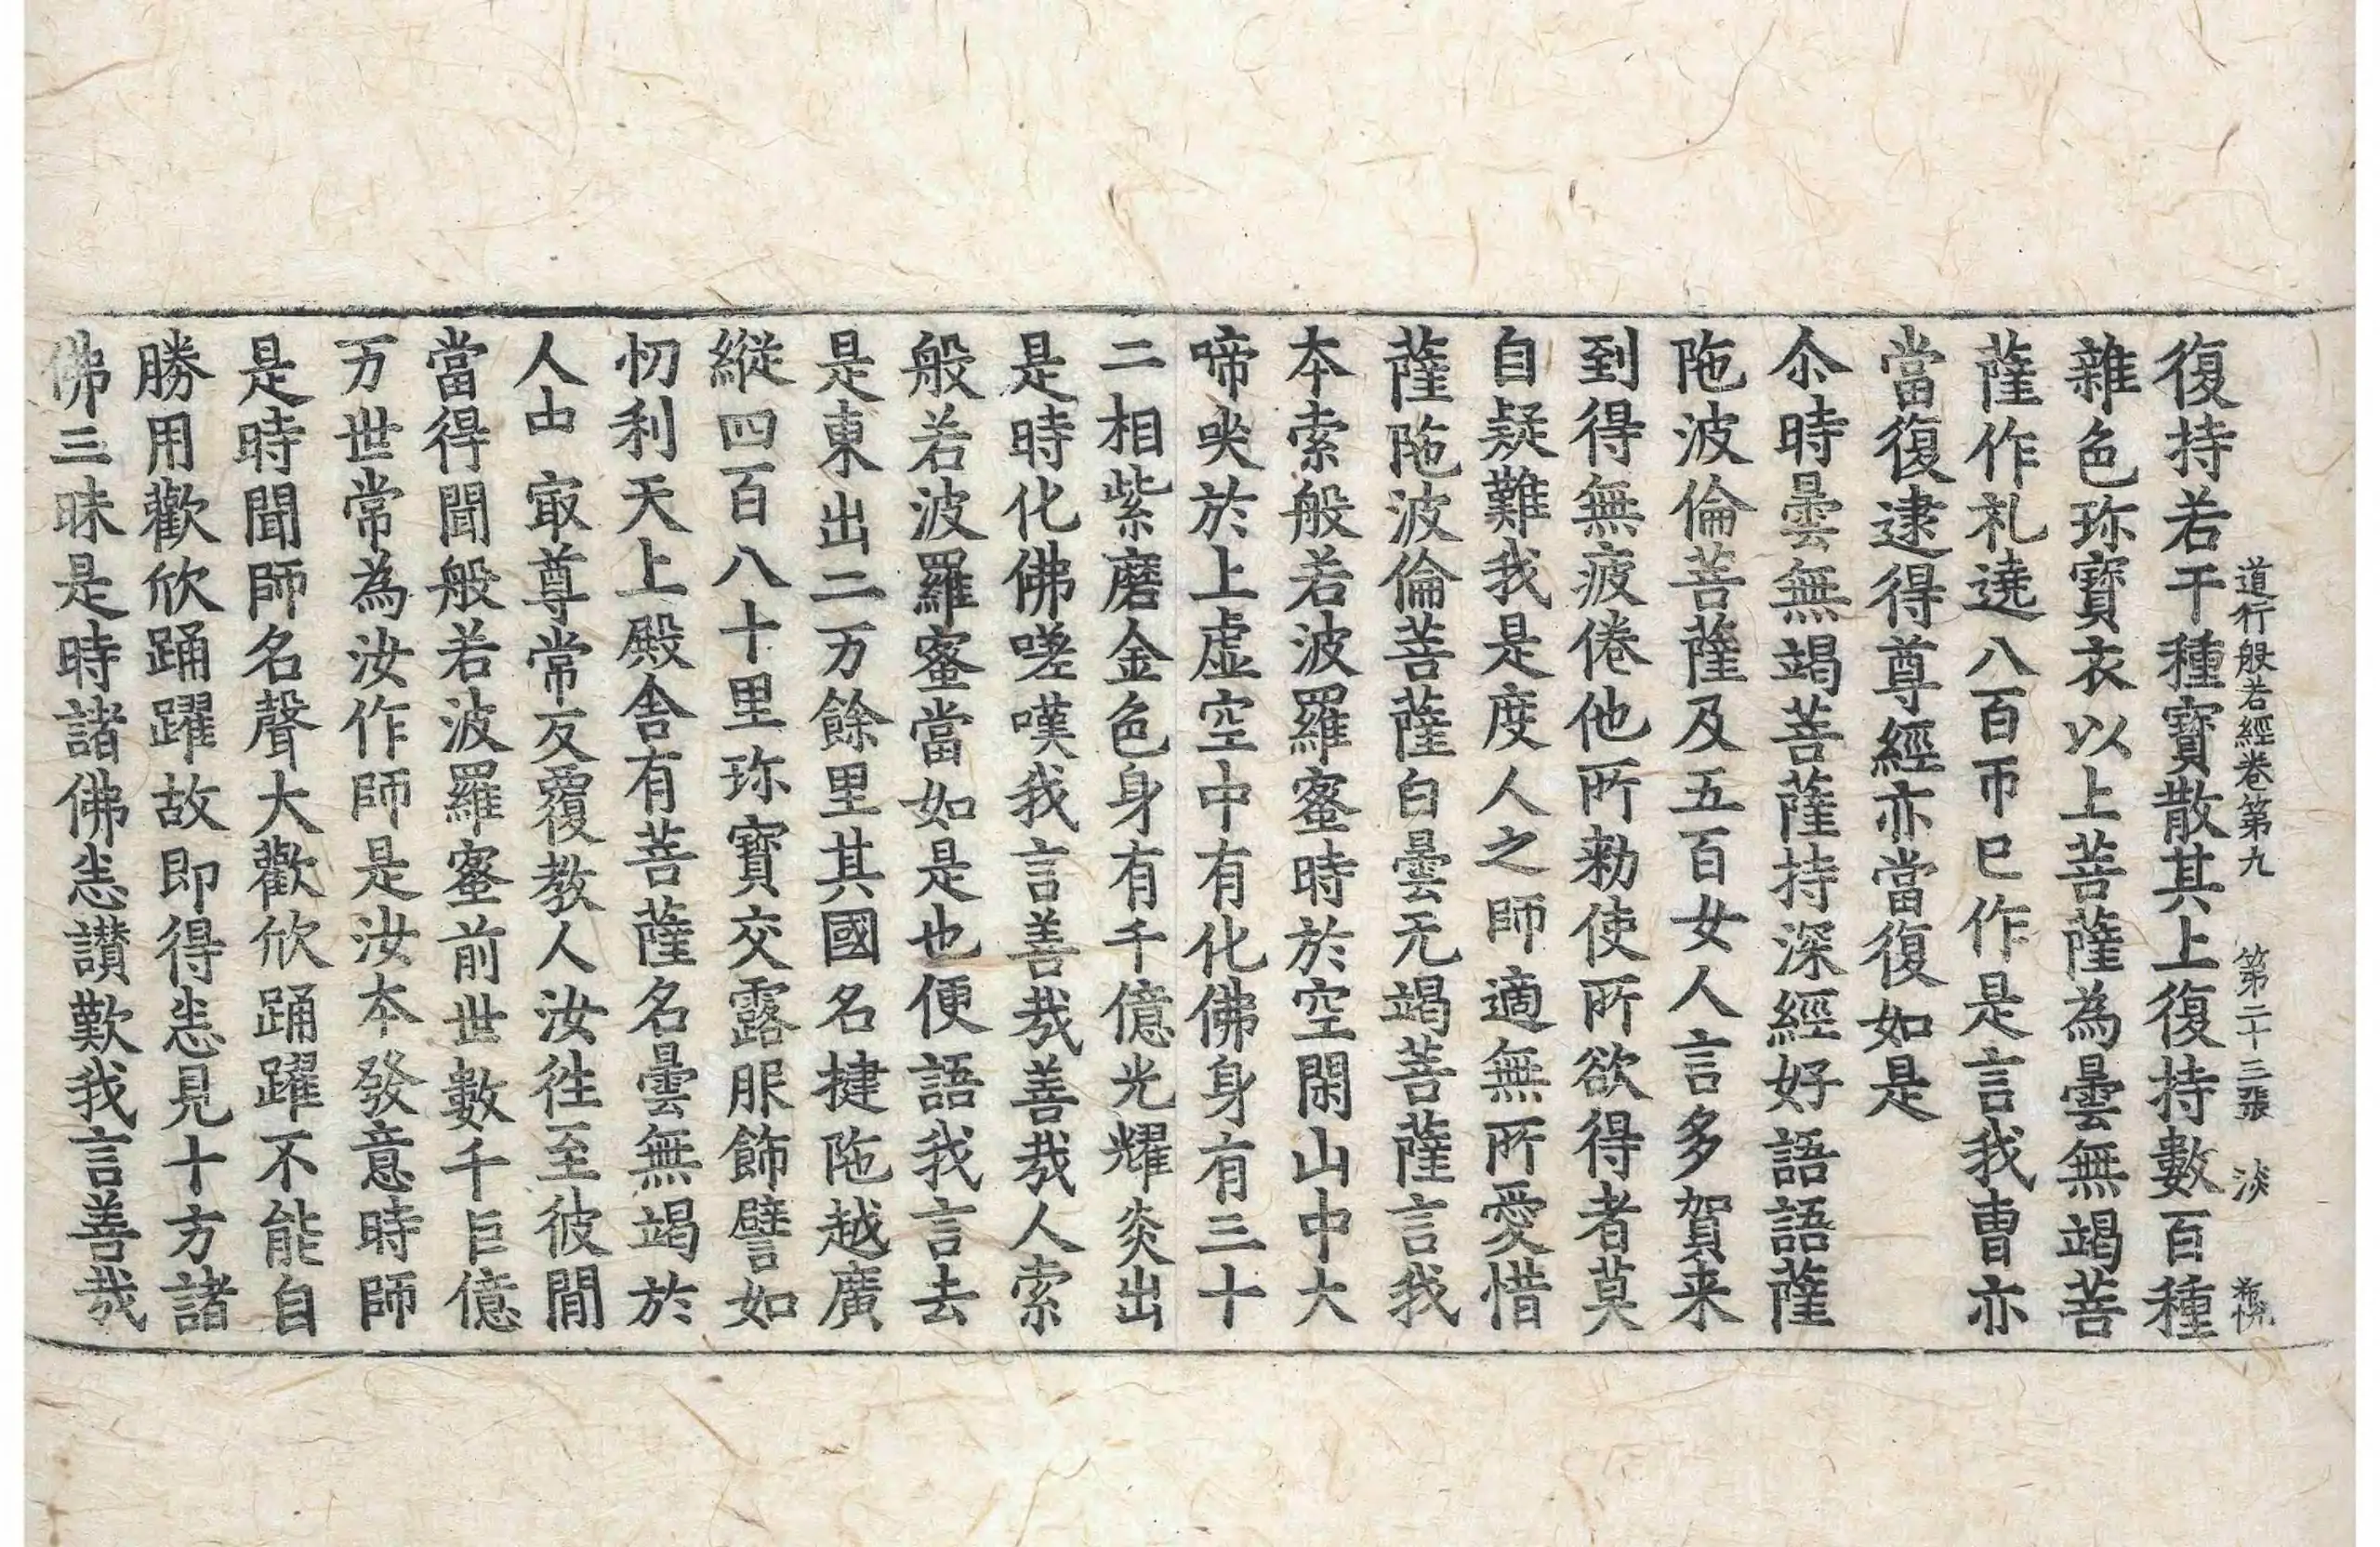 道行般若經卷第九 第二十三張 淡
復持若干種寶散其上復持數百種
雜色珎寶衣以上菩薩為曇無竭菩
薩作礼遶八百帀已作是言我曹亦
當復逮得尊經亦當復如是
尒時曇無竭菩薩持深經好語語薩
陁波倫菩薩及五百女人言多賀来
到得無疲倦他所勑使所欲得者莫
自疑難我是度人之師適無所愛惜
薩陁波倫菩薩白曇无竭菩薩言我
本索般若波羅蜜時於空閑山中大
啼哭於上虛空中有化佛身有三十
二相紫磨金色身有千億光耀炎出
是時化佛嗟嘆我言善哉善哉人索
般若波羅蜜當如是也便語我言去
是東出二万餘里其國名揵陁越廣
縱四百八十里珎寶交露服飾譬如
忉利天上殿舎有菩薩名曇無竭於
人中㝡尊常反覆教人汝徃至彼閒
當得聞般若波羅蜜前世數千巨億
万世常為汝作師是汝本發意時師
是時聞師名聲大歡欣踊躍不能自
勝用歡欣踊躍故即得悉見十方諸
佛三昧是時諸佛悉讃歎我言善哉